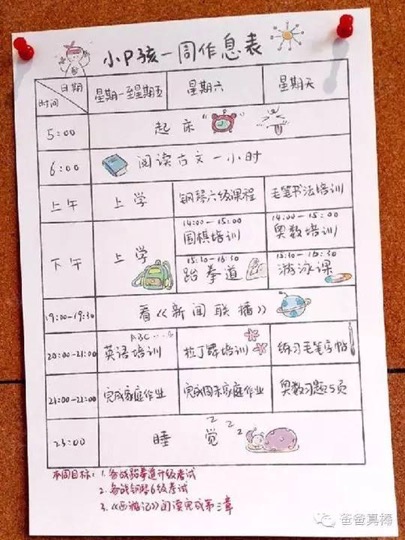 小P孩一周作息表
日期
时间
星期一至星期五 星期六 星期天
5:00 起床
6:00 阅读古文一小时
上午 上学 钢琴六级课程 毛笔书法培训
下午 上学
14:00-15:00 14:00-15:00
围棋培训 奥数培训
15:30-16:30 15:30-16:30
跆拳道 游泳课
19:00-19:30 看《新闻联播》
ABC
20:00-21:00 英语培训 拉丁舞培训 练习毛笔字帖
21:00-22:00 完成家庭作业 完成周末家庭作业 奥数习题5页
23:00 睡觉zzz
本周目标: 1. 备战跆拳道升级考试
2. 备战钢琴6级考试
3.《西游记》阅读完成第 章
爸爸真棒